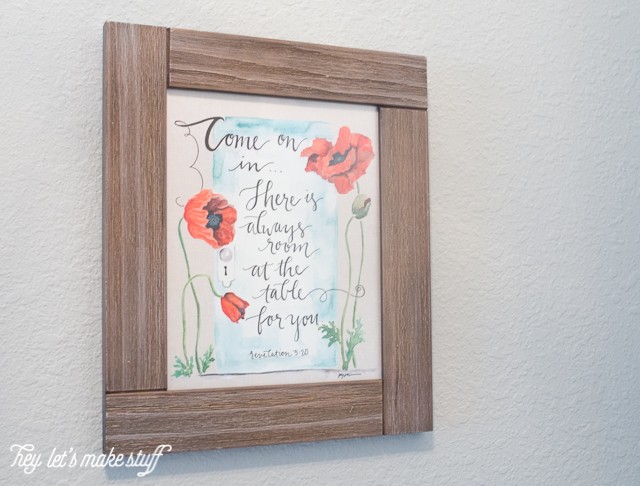 Come on
in...
There is
always
room
at the
table
for you
revelation 3:20
Hey let's make stuff